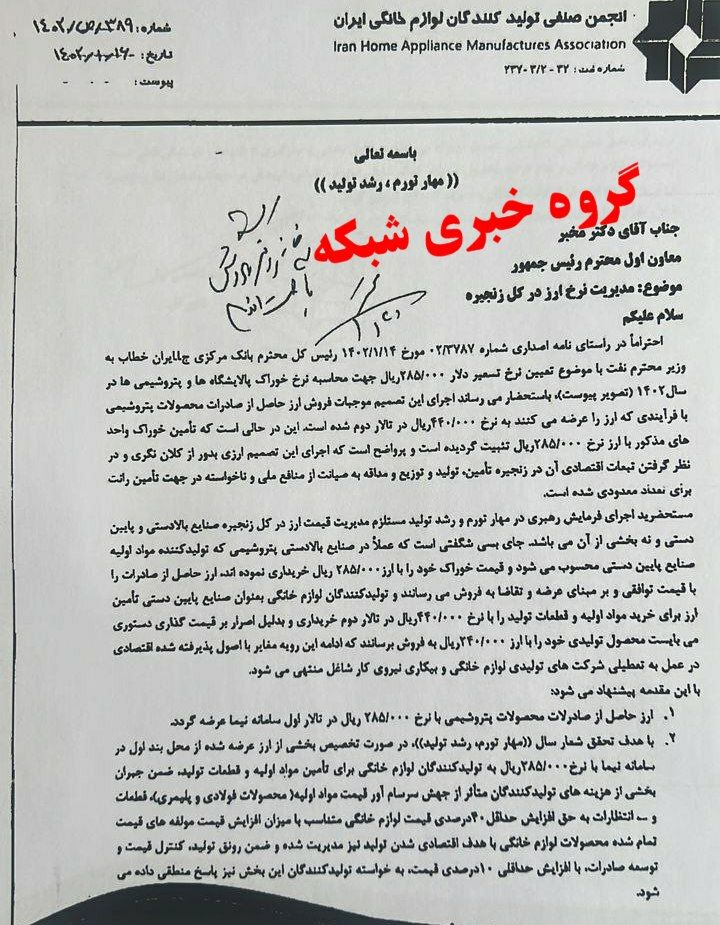 انجمن صنفی تولید کنندگان لوازم خانگی ایران
Iran Home Appliance Manufactures Association
شماره ثبت : ۳۲ - ۳/۲- ۲۳۷
شماره: ۳۸۹/ص/۱۴۰۲
تاریخ:
پیوست:
باسمه تعالی
(( مهار تورم ، رشد تولید ))
گروه خبری شبکه
جناب آقای دکتر مخبر
معاون اول محترم رئیس جمهور
موضوع: مدیریت نرخ ارز در کل زنجیره
سلام علیکم
احتراماً در راستای نامه اصداری شماره ۰۲/۳۷۸۷ مورخ ۱۴۰۲/۱/۱۴ رئیس کل محترم بانک مرکزی ج.ا.ایران خطاب به
وزیر محترم نفت با موضوع تعیین نرخ تسعیر دلار ۲۸۵/۰۰۰ریال جهت محاسبه نرخ خوراک پالایشگاه ها و پتروشیمی ها در
سال۱۴۰۲ (تصویر پیوست)، باستحضار می رساند اجرای این تصمیم موجبات فروش ارز حاصل از صادرات محصولات پتروشیمی
با فرآیندی که ارز را عرضه می کنند به نرخ ۴۴۰/۰۰۰ریال در تالار دوم شده است. این در حالی است که تأمین خوراک واحد
های مذکور با ارز نرخ ۲۸۵/۰۰۰ریال تثبیت گردیده است و پرواضح است که اجرای این تصمیم ارزی بدور از کلان نگری و در
نظر گرفتن تبعات اقتصادی آن در زنجیره تأمین، تولید و توزیع و مداقه به صیانت از منافع ملی و ناخواسته در جهت تأمین رانت
برای تعداد معدودی شده است.
مستحضرید اجرای فرمایش رهبری در مهار تورم و رشد تولید مستلزم مدیریت قیمت ارز در کل زنجیره صنایع بالادستی و پایین
دستی و نه بخشی از آن می باشد. جای بسی شگفتی است که عملاً در صنایع بالادستی پتروشیمی که تولیدکننده مواد اولیه
صنایع پایین دستی محسوب می شود و قیمت خوراک خود را با ارز۲۸۵/۰۰۰ ریال خریداری نموده اند، ارز حاصل از صادرات را
با قیمت توافقی و بر مبنای عرضه و تقاضا به فروش می رسانند و تولیدکنندگان لوازم خانگی بعنوان صنایع پایین دستی تأمین
ارز برای خرید مواد اولیه و قطعات تولید را با نرخ ۴۴۰/۰۰۰ریال در تالار دوم خریداری و بدلیل اصرار بر قیمت گذاری دستوری
می بایست محصول تولیدی خود را با ارز ۲۴۰/۰۰۰ریال به فروش برسانند که ادامه این رویه مغایر با اصول پذیرفته شده اقتصادی
در عمل به تعطیلی شرکت های تولیدی لوازم خانگی و بیکاری نیروی کار شاغل منتهی می شود.
با این مقدمه پیشنهاد می شود:
۱. ارز حاصل از صادرلات محصولات پتروشیمی با نرخ ۲۸۵/۰۰۰ ریال در تالار اول سامانه نیما عرضه گردد.
۲. با هدف تحقق شعار سال ((مهار تورم، رشد تولید))، در صورت تخصیص بخشی از ارز عرضه شده از محل بند اول در
سامانه نیما با نرخ۲۸۵/۰۰۰ریال به تولیدکنندگان لوازم خانگی برای تأمین مواد اولیه و قطعات تولید، ضمن جبران
بخشی از هزینه های تولیدکنندگان متأثر از جهش سرسام آور قیمت مواد اولیه( محصولات فولادی و پلیمری)، قطعات
و ... انتظارات به حق افزایش حداقل۴۰درصدی قیمت لوازم خانگی متناسب با میزان افزایش قیمت مولفه های قیمت
تمام شده محصولات لوازم خانگی با هدف اقتصادی شدن تولید نیز مدیریت شده و ضمن رونق تولید، کنترل قیمت و
توسعه صادرات، با افزایش حداقلی ۱۰درصدی قیمت، به خواسته تولیدکنندگان این بخش نیز پاسخ منطقی داده می
شود.